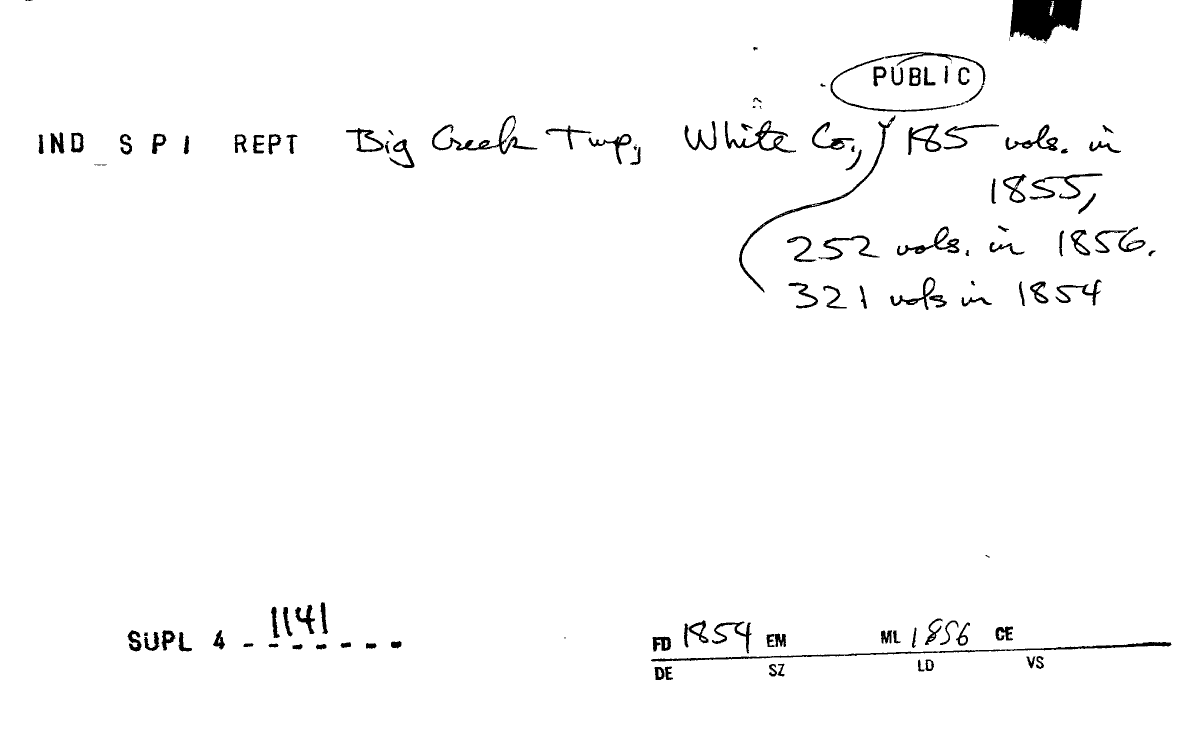 PUBLIC
IND S P I REPT Big Creek Twp, White Co., 185 vols. in
1855,
252 vols. in 1856.
321 vols in 1854
SUPL 4 - 1141
FD 1854 EM ML 1856 CE
DE SZ LD VS